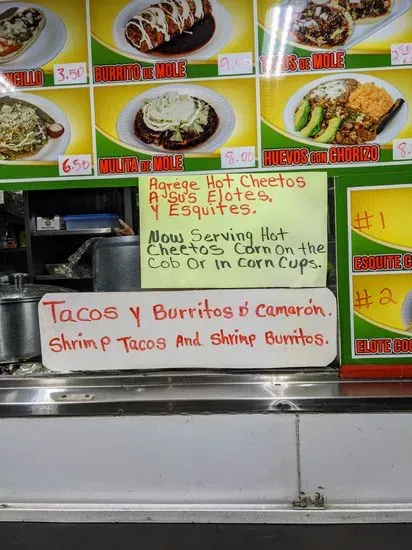 UCILLO
3.50
BURRITO DE MOLE
TACOS DE MOLE
6.50
MULITA DE MOLE
8.00
HUEVOS CON CHORIZO
8.00
Agrege Hot Cheetos
A Sus Elotes.
Y Esquites.
Now Serving Hot
Cheetos Corn On the
Cob Or in corn Cups.
Tacos y Burritos D' Camarón.
Shrimp Tacos And Shrimp Burritos.
#1
ESQUITE C
#2
ELOTE CO